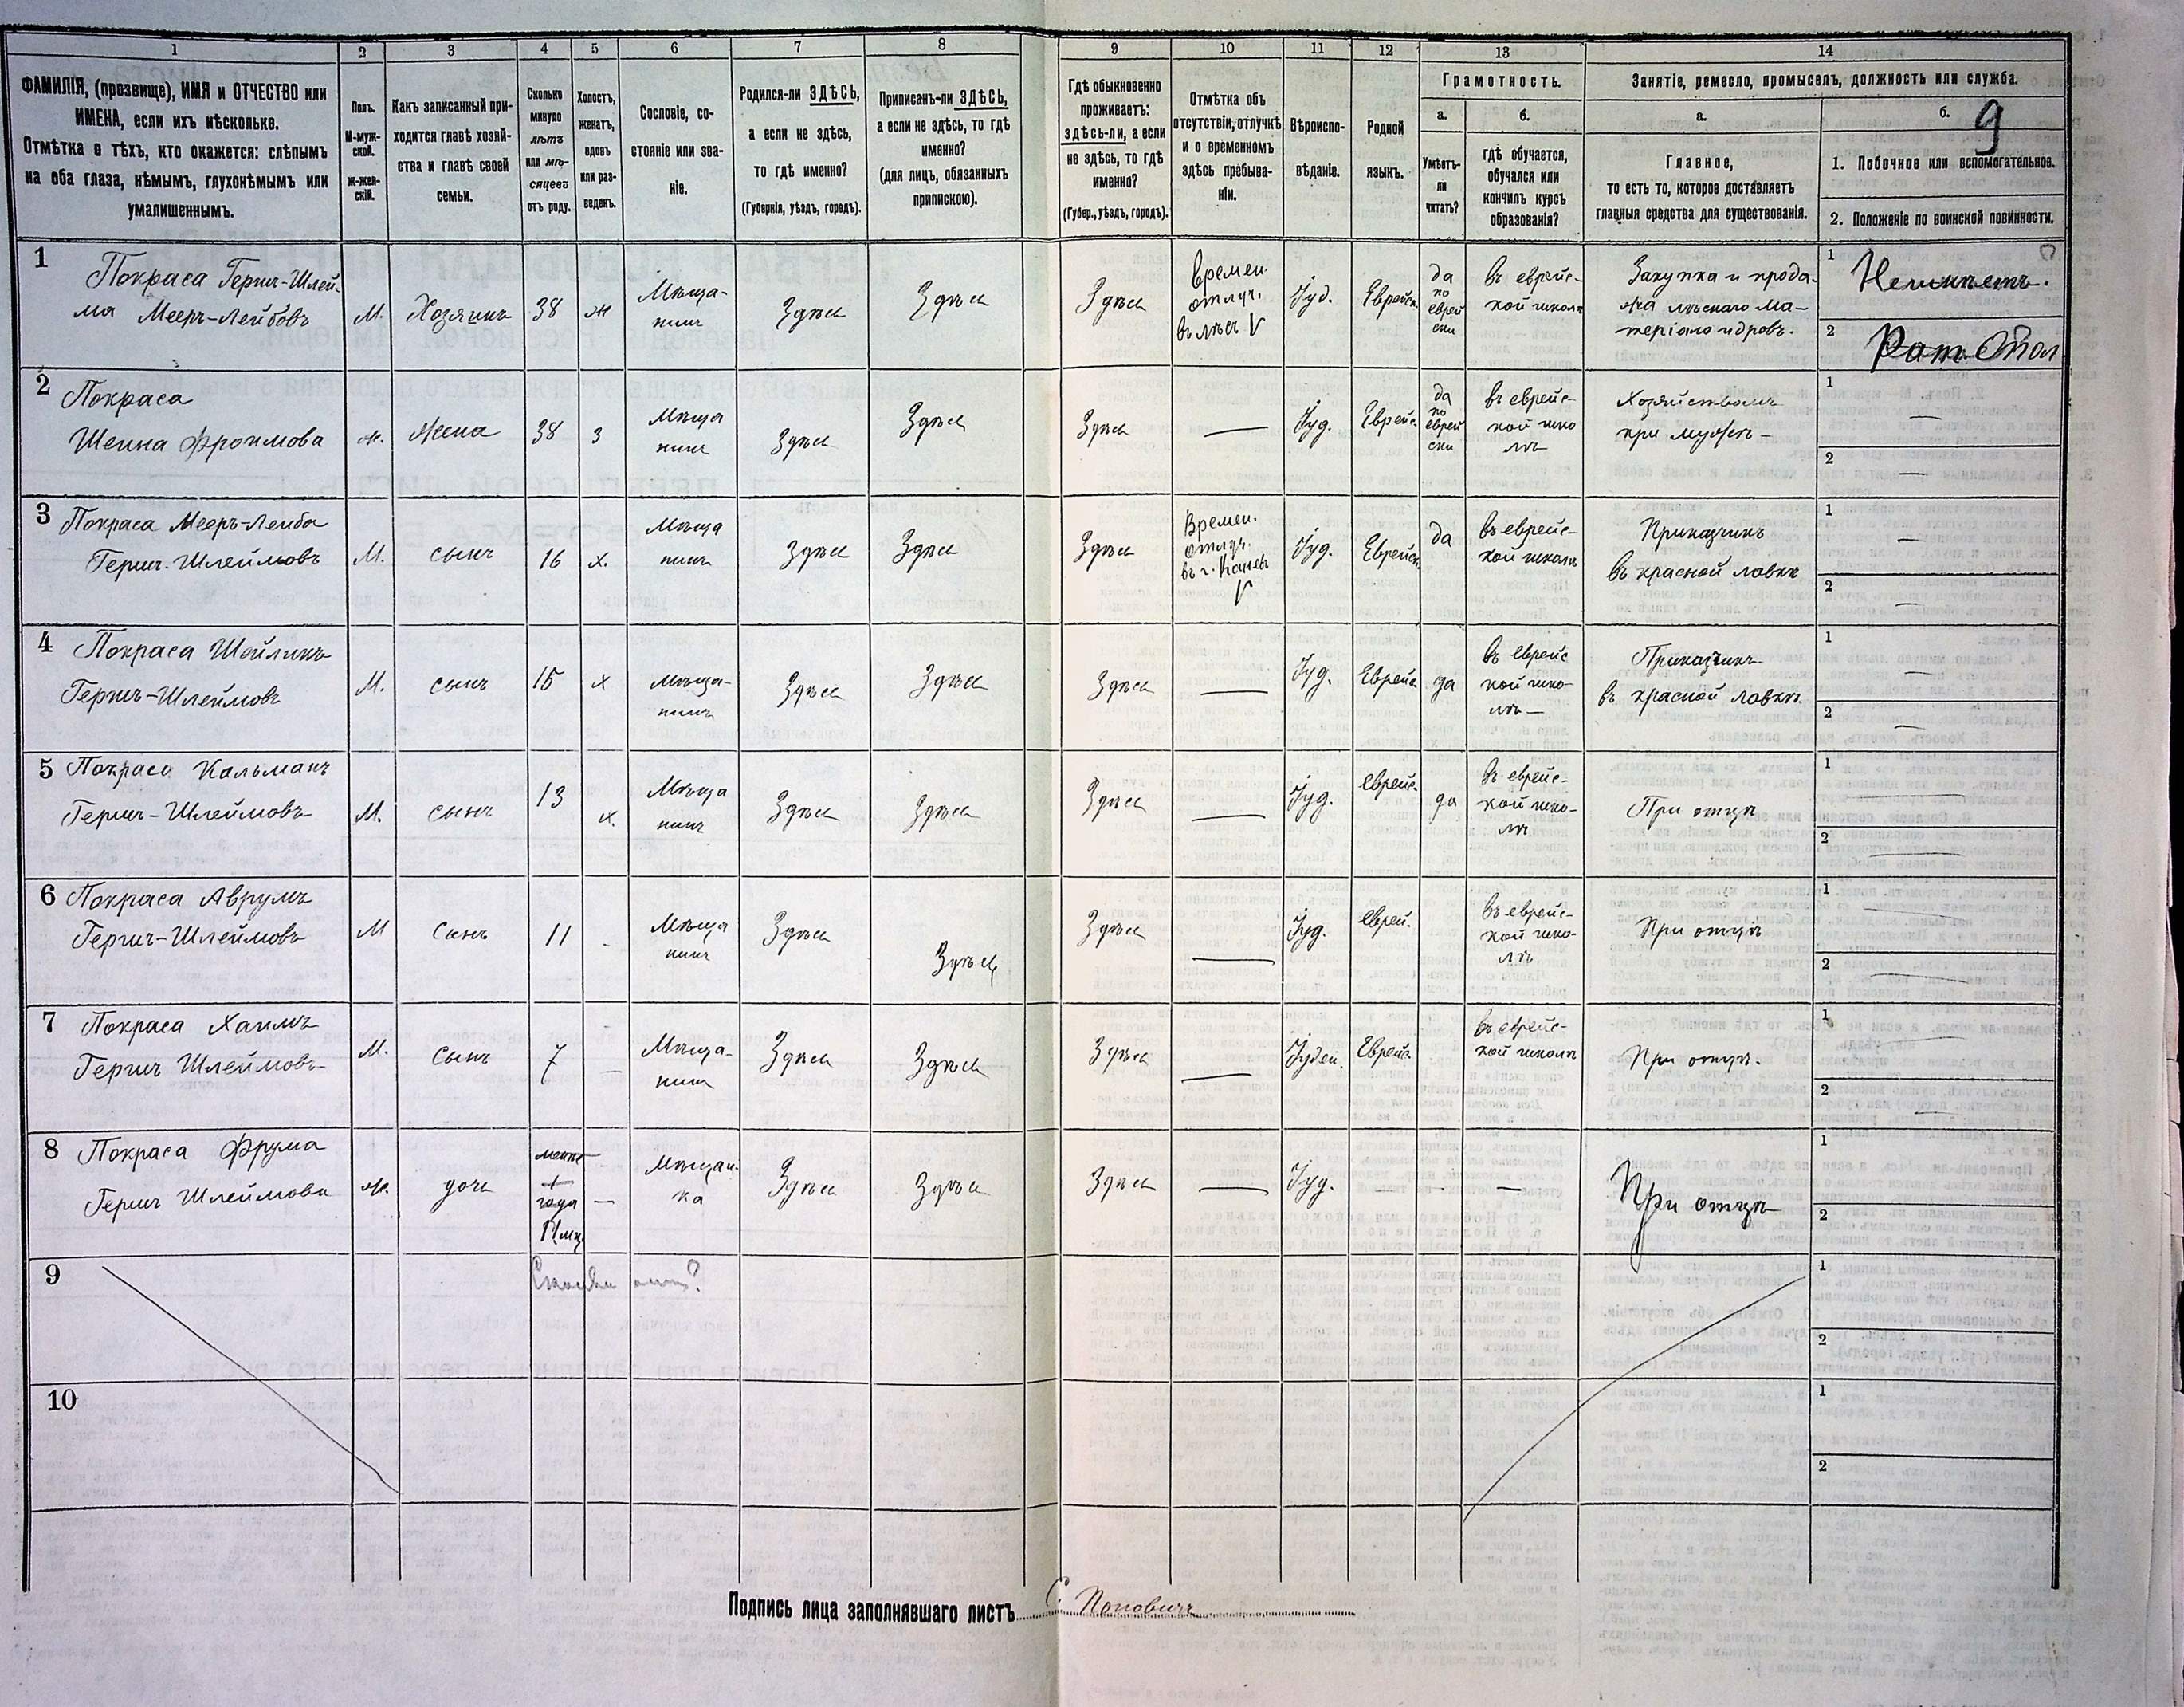 1 2 3 4 5 6 7 8 9 10 11 12 13 14
ФАМИЛІЯ, (прозвище), ИМЯ и ОТЧЕСТВО или
ИМЕНА, если ихъ нѣсколько.
Отмѣтка о тѣхъ, кто окажется: слѣпымъ
на оба глаза, нѣмымъ, глухонѣмымъ или
умалишеннымъ.
Полъ.
М-муж-
ской.
Ж-жен-
скій.
Какъ записанный при-
ходится главѣ хозяй-
ства и главѣ своей
семьи.
Сколько
минуло
лѣтъ
или мѣ-
сяцевъ
отъ роду.
Холостъ,
женатъ,
вдовъ
или раз-
веденъ.
Сословіе, со-
стояніе или зва-
ніе.
Родился-ли ЗДѢСЬ,
а если не здѣсь,
то гдѣ именно?
(Губернія, уѣздъ, городъ).
Приписанъ-ли ЗДѢСЬ,
а если не здѣсь, то гдѣ
именно?
(для лицъ, обязанныхъ
припискою).
Гдѣ обыкновенно
проживаетъ:
здѣсь-ли, а если
не здѣсь, то гдѣ
именно?
(Губер., уѣздъ, городъ).
Отмѣтка объ
отсутствіи, отлучкѣ
и о временномъ
здѣсь пребыва-
ніи.
Вѣроиспо-
вѣданіе.
Родной
языкъ.
Грамотность.
а.
Умѣетъ-
ли
читать?
б.
гдѣ обучается,
обучался или
кончилъ курсъ
образованія?
Занятіе, ремесло, промыселъ, должность или служба.
а.
Главное,
то есть то, которое доставляетъ
главныя средства для существованія.
б. 9
1. Побочное или вспомогательное.
2. Положеніе по воинской повинности.
1
Покраса Гершъ-Шлей-
ма Мееръ-Лейбовъ
М.
Хозяинъ
38
ж
Мѣща-
нинъ
Здѣсь
Здѣсь
Здѣсь
времен.
отлуч.
въ лѣсъ V
Іуд.
Еврейск.
да
по
еврей
ски
въ еврейс-
кой школѣ
Закупка и прода-
жа лѣснаго ма-
теріала и дровъ.
1 Неимѣетъ.
2 Рат. Опол
2
Покраса
Шейна Фроимова
ж.
Жена
38
з
Мѣща
нинъ
Здѣсь
Здѣсь
Здѣсь
—
Іуд.
Еврейс.
да
по
еврей
ски
въ еврейс-
кой шко
лѣ
Хозяйствомъ
при мужѣ —
1 —
2 —
3
Покраса Мееръ-Лейба
Гершъ-Шлеймовъ
М.
сынъ
16
х.
Мѣща
нинъ
Здѣсь
Здѣсь
Здѣсь
Времен.
отлуч.
въ г. Каневъ
V
Іуд.
Еврейск.
да
въ еврейс-
кой школѣ
Приказчикъ
въ красной лавкѣ
1 —
2 —
4
Покраса Шойликъ
Гершъ-Шлеймовъ
М.
сынъ
15
х
Мѣща-
нинъ
Здѣсь
Здѣсь
Здѣсь
—
Іуд.
Еврейс.
да
въ еврейс
кой шко-
лѣ —
Приказчикъ
въ красной лавкѣ.
1 —
2 —
5
Покраса Кальманъ
Гершъ-Шлеймовъ
М.
сынъ
13
х.
Мѣща
нинъ
Здѣсь
Здѣсь
Здѣсь
—
Іуд.
еврейс.
да
въ еврейс-
кой шко-
лѣ
При отцѣ
1 —
2 —
6
Покраса Аврумъ
Гершъ-Шлеймовъ
М
Сынъ
11
-
Мѣща
нинъ
Здѣсь
Здѣсь
Здѣсь
—
Іуд.
еврей.
въ еврейс-
кой шко-
лѣ
При отцѣ
1 —
2 —
7
Покраса Хаимъ
Гершъ Шлеймовъ
М.
Сынъ
7
—
Мѣща-
нинъ
Здѣсь
Здѣсь
Здѣсь
—
Іудей.
Еврейс.
въ еврейс-
кой школѣ
При отцѣ.
1
2 —
8
Покраса Фрума
Гершъ Шлеймова
ж.
дочь
менѣе
1
года
11 мц.
—
Мѣщан-
ка
Здѣсь
Здѣсь
Здѣсь
—
Іуд.
—
-
—
При отцѣ
1
2
9
1
2
10
1
2
Подпись лица заполнявшаго листъ С. Поповичъ